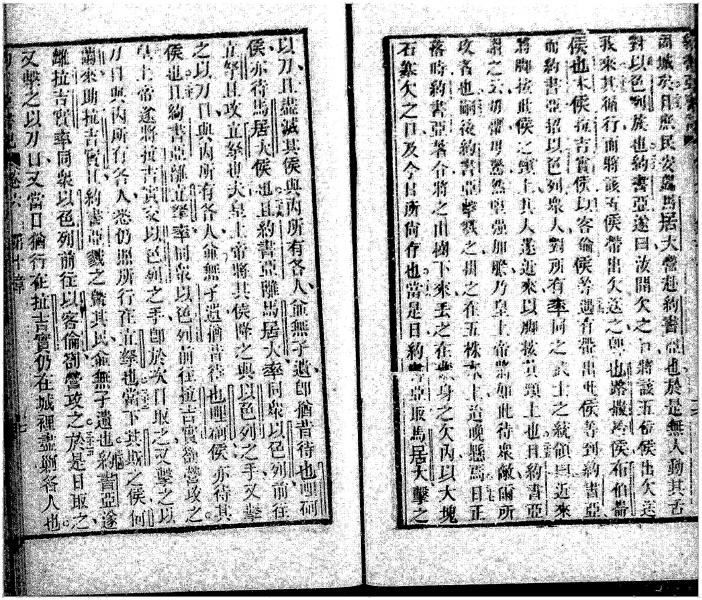 諸城矣日庶民安詣馬居大營赴約書亞也於是無人動其舌
對以色列族也約書亞遂曰汝開欠之口將該五侯出欠送
我來其循行而將該五侯帶出欠送之卽也路撒冷侯希伯崙
侯也末侯拉吉實侯以客倫侯等遇有帶出此侯等到約書亞
而約書亞招以色列衆人對所有率同之武士之統領曰近來
將脚按此侯之頸上其人遂近來以脚按其頸上也且約書亞
謂之云毋懼毋驚然堅強加膽乃皇上帝將如此待衆敵爾所
攻者也嗣後約書亞擊戮之掛之在五株木上迨晚懸焉日正
落時約書亞着令將之由樹下來丟之在藏身之欠內以大塊
石蓋欠之口及今日所尚存也當是日約書亞取馬居大擊之
以刀且盡滅其侯與內所有各人並無孑遺卽猶昔待也哩科
侯亦待馬居大侯也且約書亞離馬居大率同衆以色列前往
立拏且攻立拏也夫皇上帝將其侯降之與以色列之手又擊
之以刀口與內所有各人並無孑遺猶昔待也哩科侯亦待其
侯也且約書亞離立拏率同衆以色列前往拉吉實劄營攻之
皇上帝遂將拉吉實交以色列之手卽於次日取之又擊之以
刀口與內所有各人悉仍照所行在立拏也當下其斯之侯何
蘭來助拉吉實且約書亞戮之曁其民並無孑遺也約書亞遂
離拉吉實率同衆以色列前往以客倫劄營攻之於是日取之
又擊之以刀口又當日猶行在拉吉實仍在城裡盡殲各人也